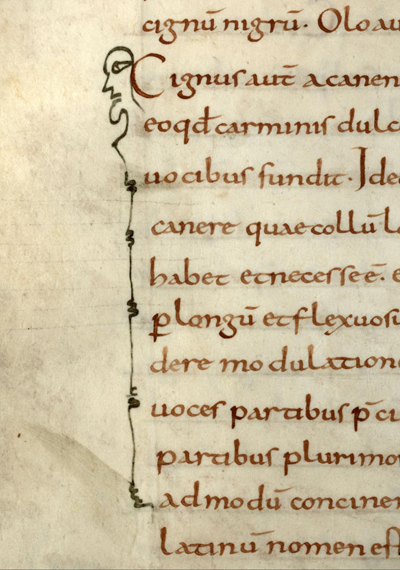 cignū nigrū. Olo au
Cignus aut̄ a canen
eo qd̄ carminis dulc
uocibus fundit. Ide
canere quae collū lo
habet et necesse ē. e
ꝑ longū et flexuosu
dere modulatione
uoces partibus p̄ ci
partibus plurimo
ad modū concinen
latinū nomen est